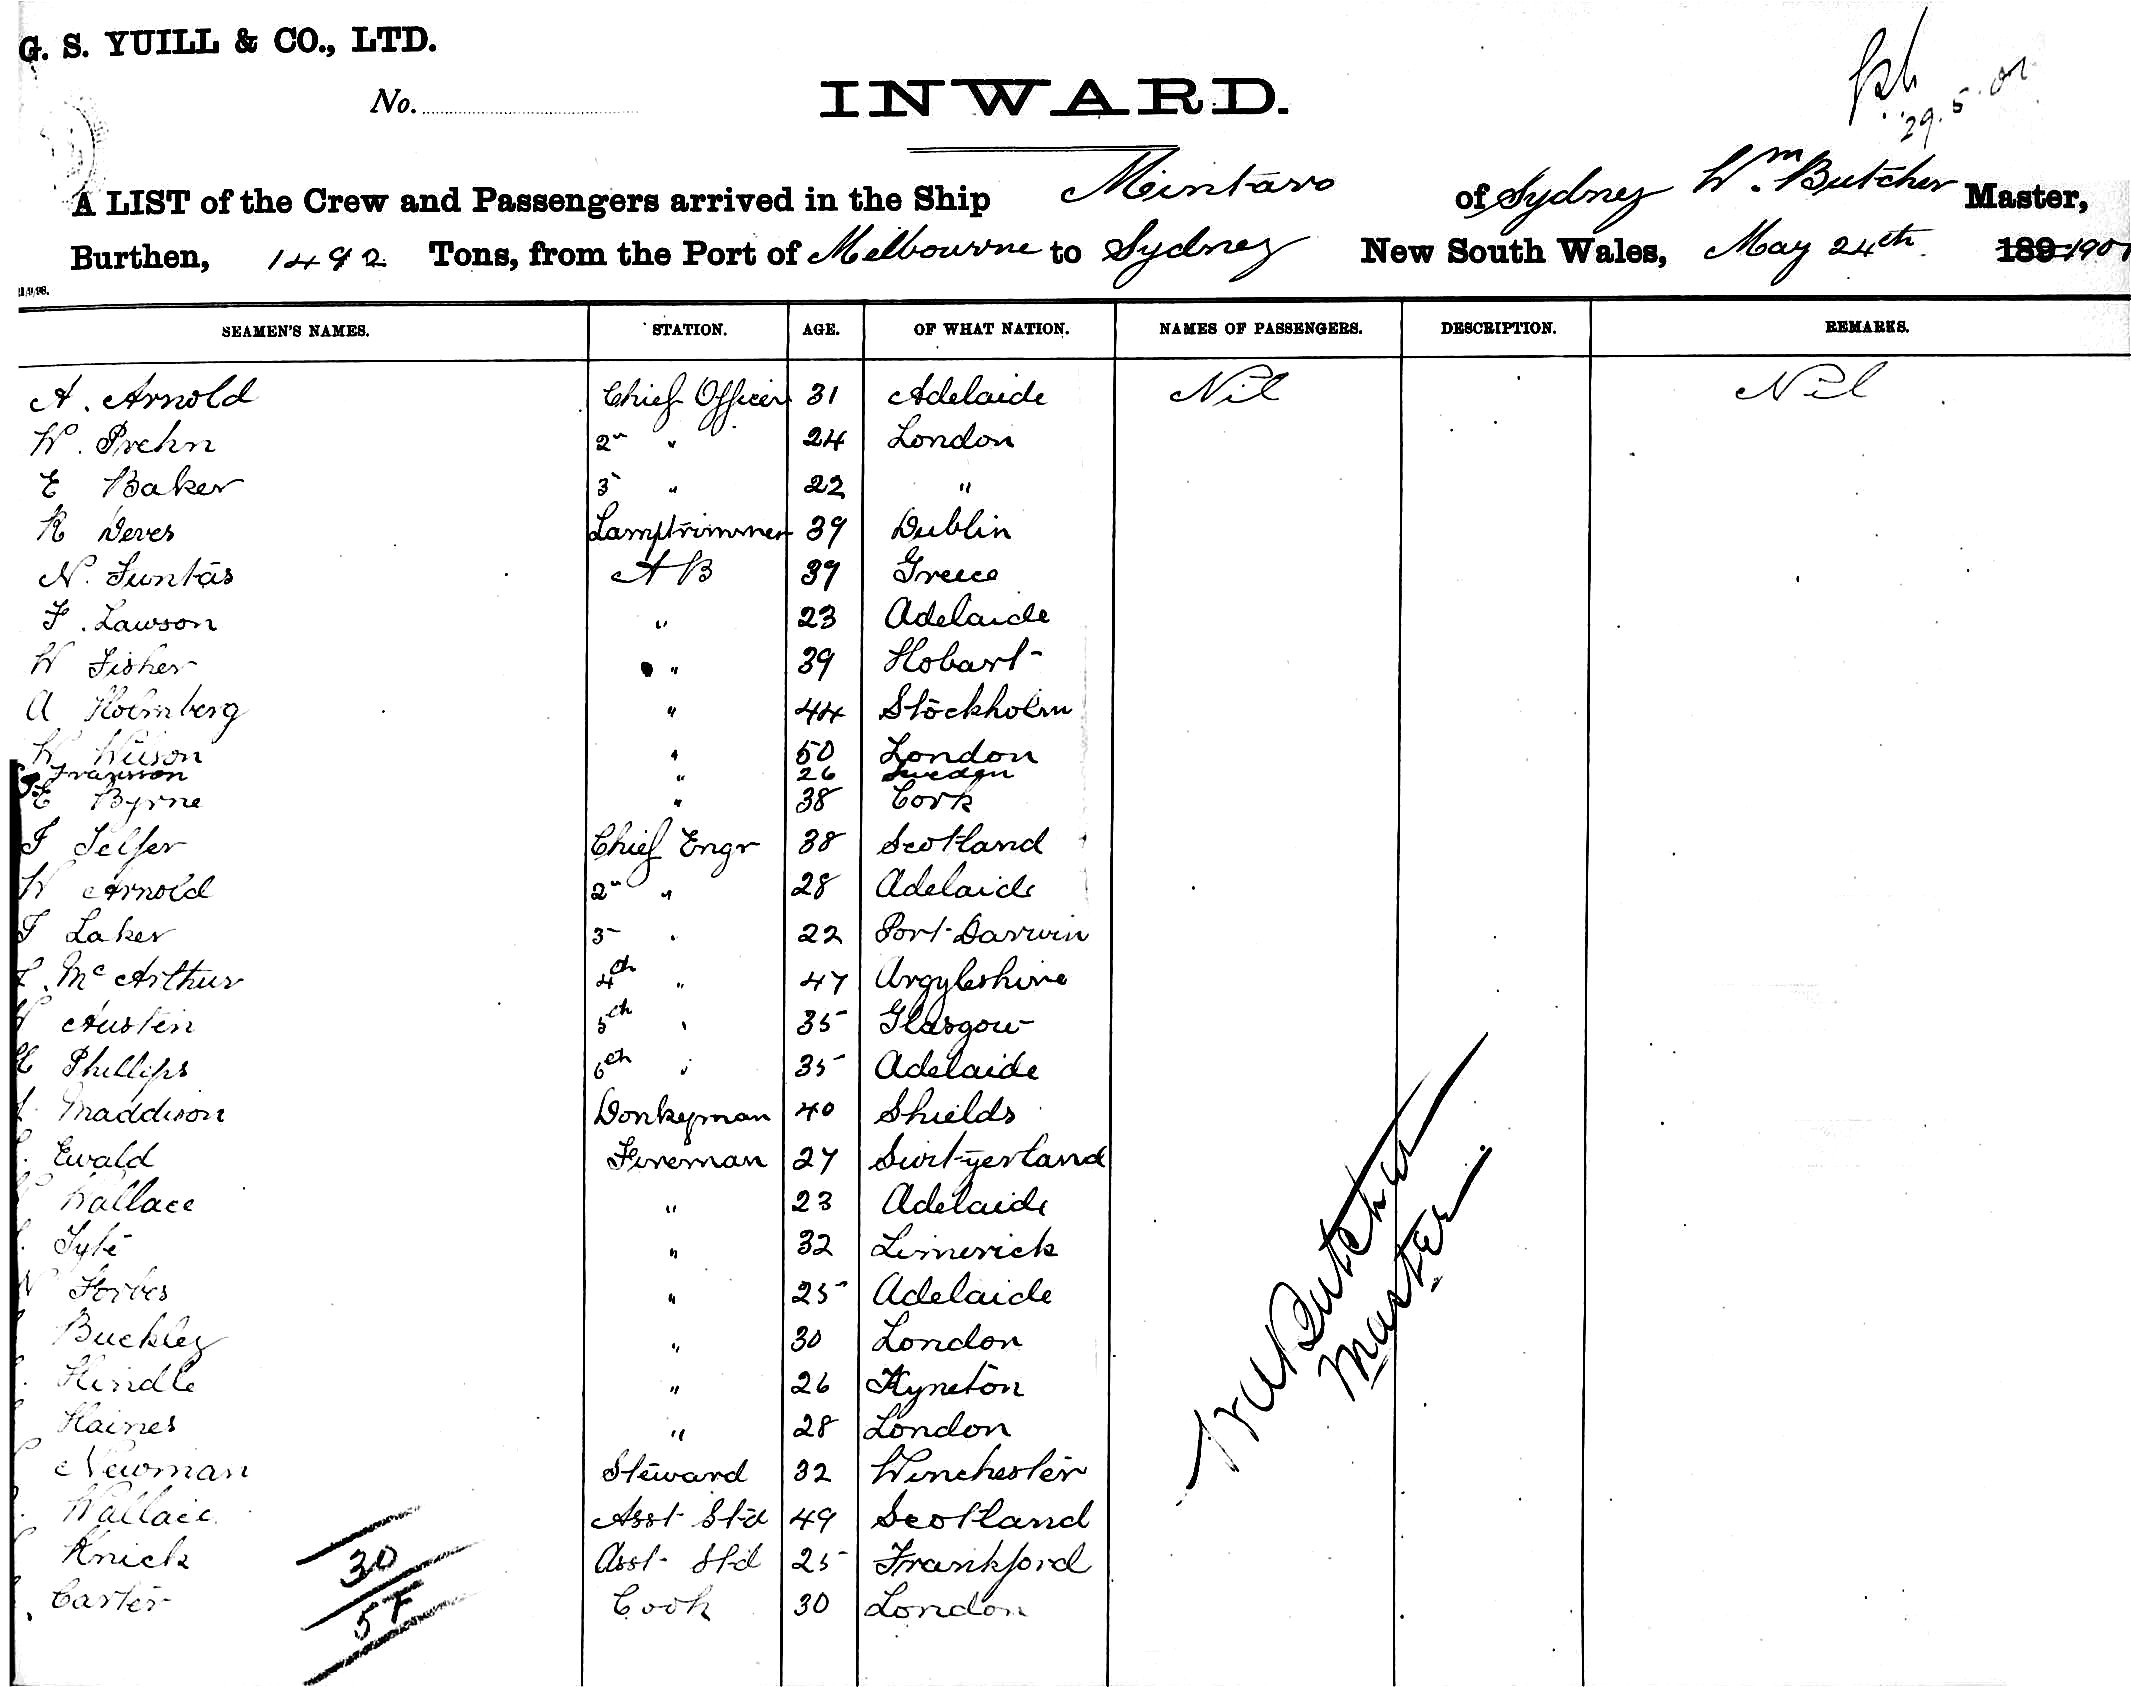 G. S. YUILL & CO., LTD.
No.
INWARD.
29.5.01
A LIST of the Crew and Passengers arrived in the Ship Mintaro of Sydney Wm Butcher Master,
Burthen, 1492 Tons, from the Port of Melbourne to Sydney New South Wales, May 24th 189 1901
SEAMEN'S NAMES. STATION. AGE. OF WHAT NATION. NAMES OF PASSENGERS. DESCRIPTION. REMARKS.
A. Arnold Chief Officer 31 Adelaide Nil Nil
W. Prehn 2n " 24 London
E Baker 3 " 22 "
R Deves Lamptrimmer 39 Dublin
N. Funtas A B 39 Greece
F. Lawson " 23 Adelaide
W Fisher " 39 Hobart
A Holmberg " 44 Stockholm
W Wilson " 50 London
Franzson " 26 Sweden
E Byrne " 38 Cork
F Telfer Chief Engr 38 Scotland
W Arnold 2n " 28 Adelaide
F Laker 3 " 22 Port Darwin
Mc Arthur 4th " 47 Argyleshire
Austin 5th " 35 Glasgow
Phillips 6th " 35 Adelaide
Maddison Donkeyman 40 Shields
Ewald Fireman 27 Switzerland
Wallace " 23 Adelaide
" 32 Limerick
Forbes " 25 Adelaide
Buckley " 30 London
Hindle " 26 Kyneton
Haines " 28 London
Newman Steward 32 Winchester
Wallace Asst Std 49 Scotland
Knick Asst Std 25 Frankford
Carter Cook 30 London
30
Wm Butcher
Master